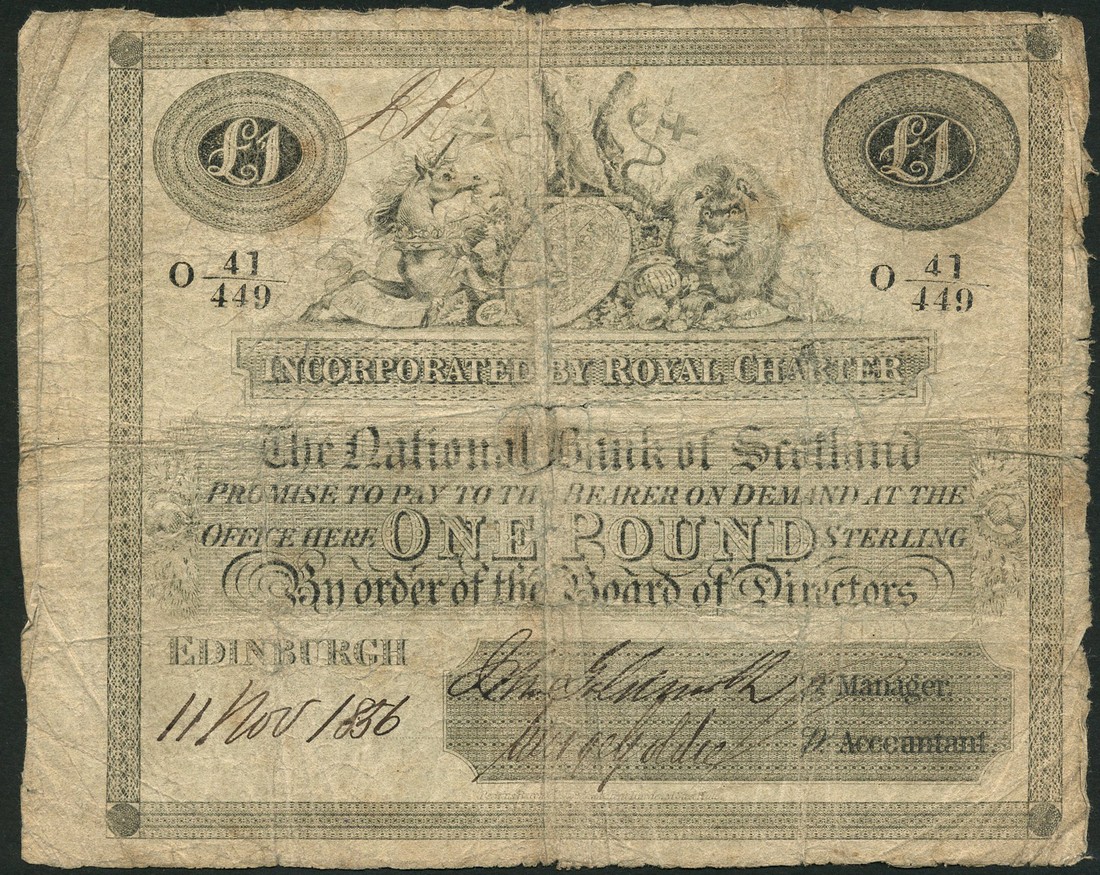 £1 £1
O 41/449 O 41/449
INCORPORATED BY ROYAL CHARTER
The National Bank of Scotland
PROMISE TO PAY TO THE BEARER ON DEMAND AT THE
OFFICE HERE ONE POUND STERLING
By order of the Board of Directors
EDINBURGH
11 Nov 1856
Pr. Manager.
Pr. Accountant.